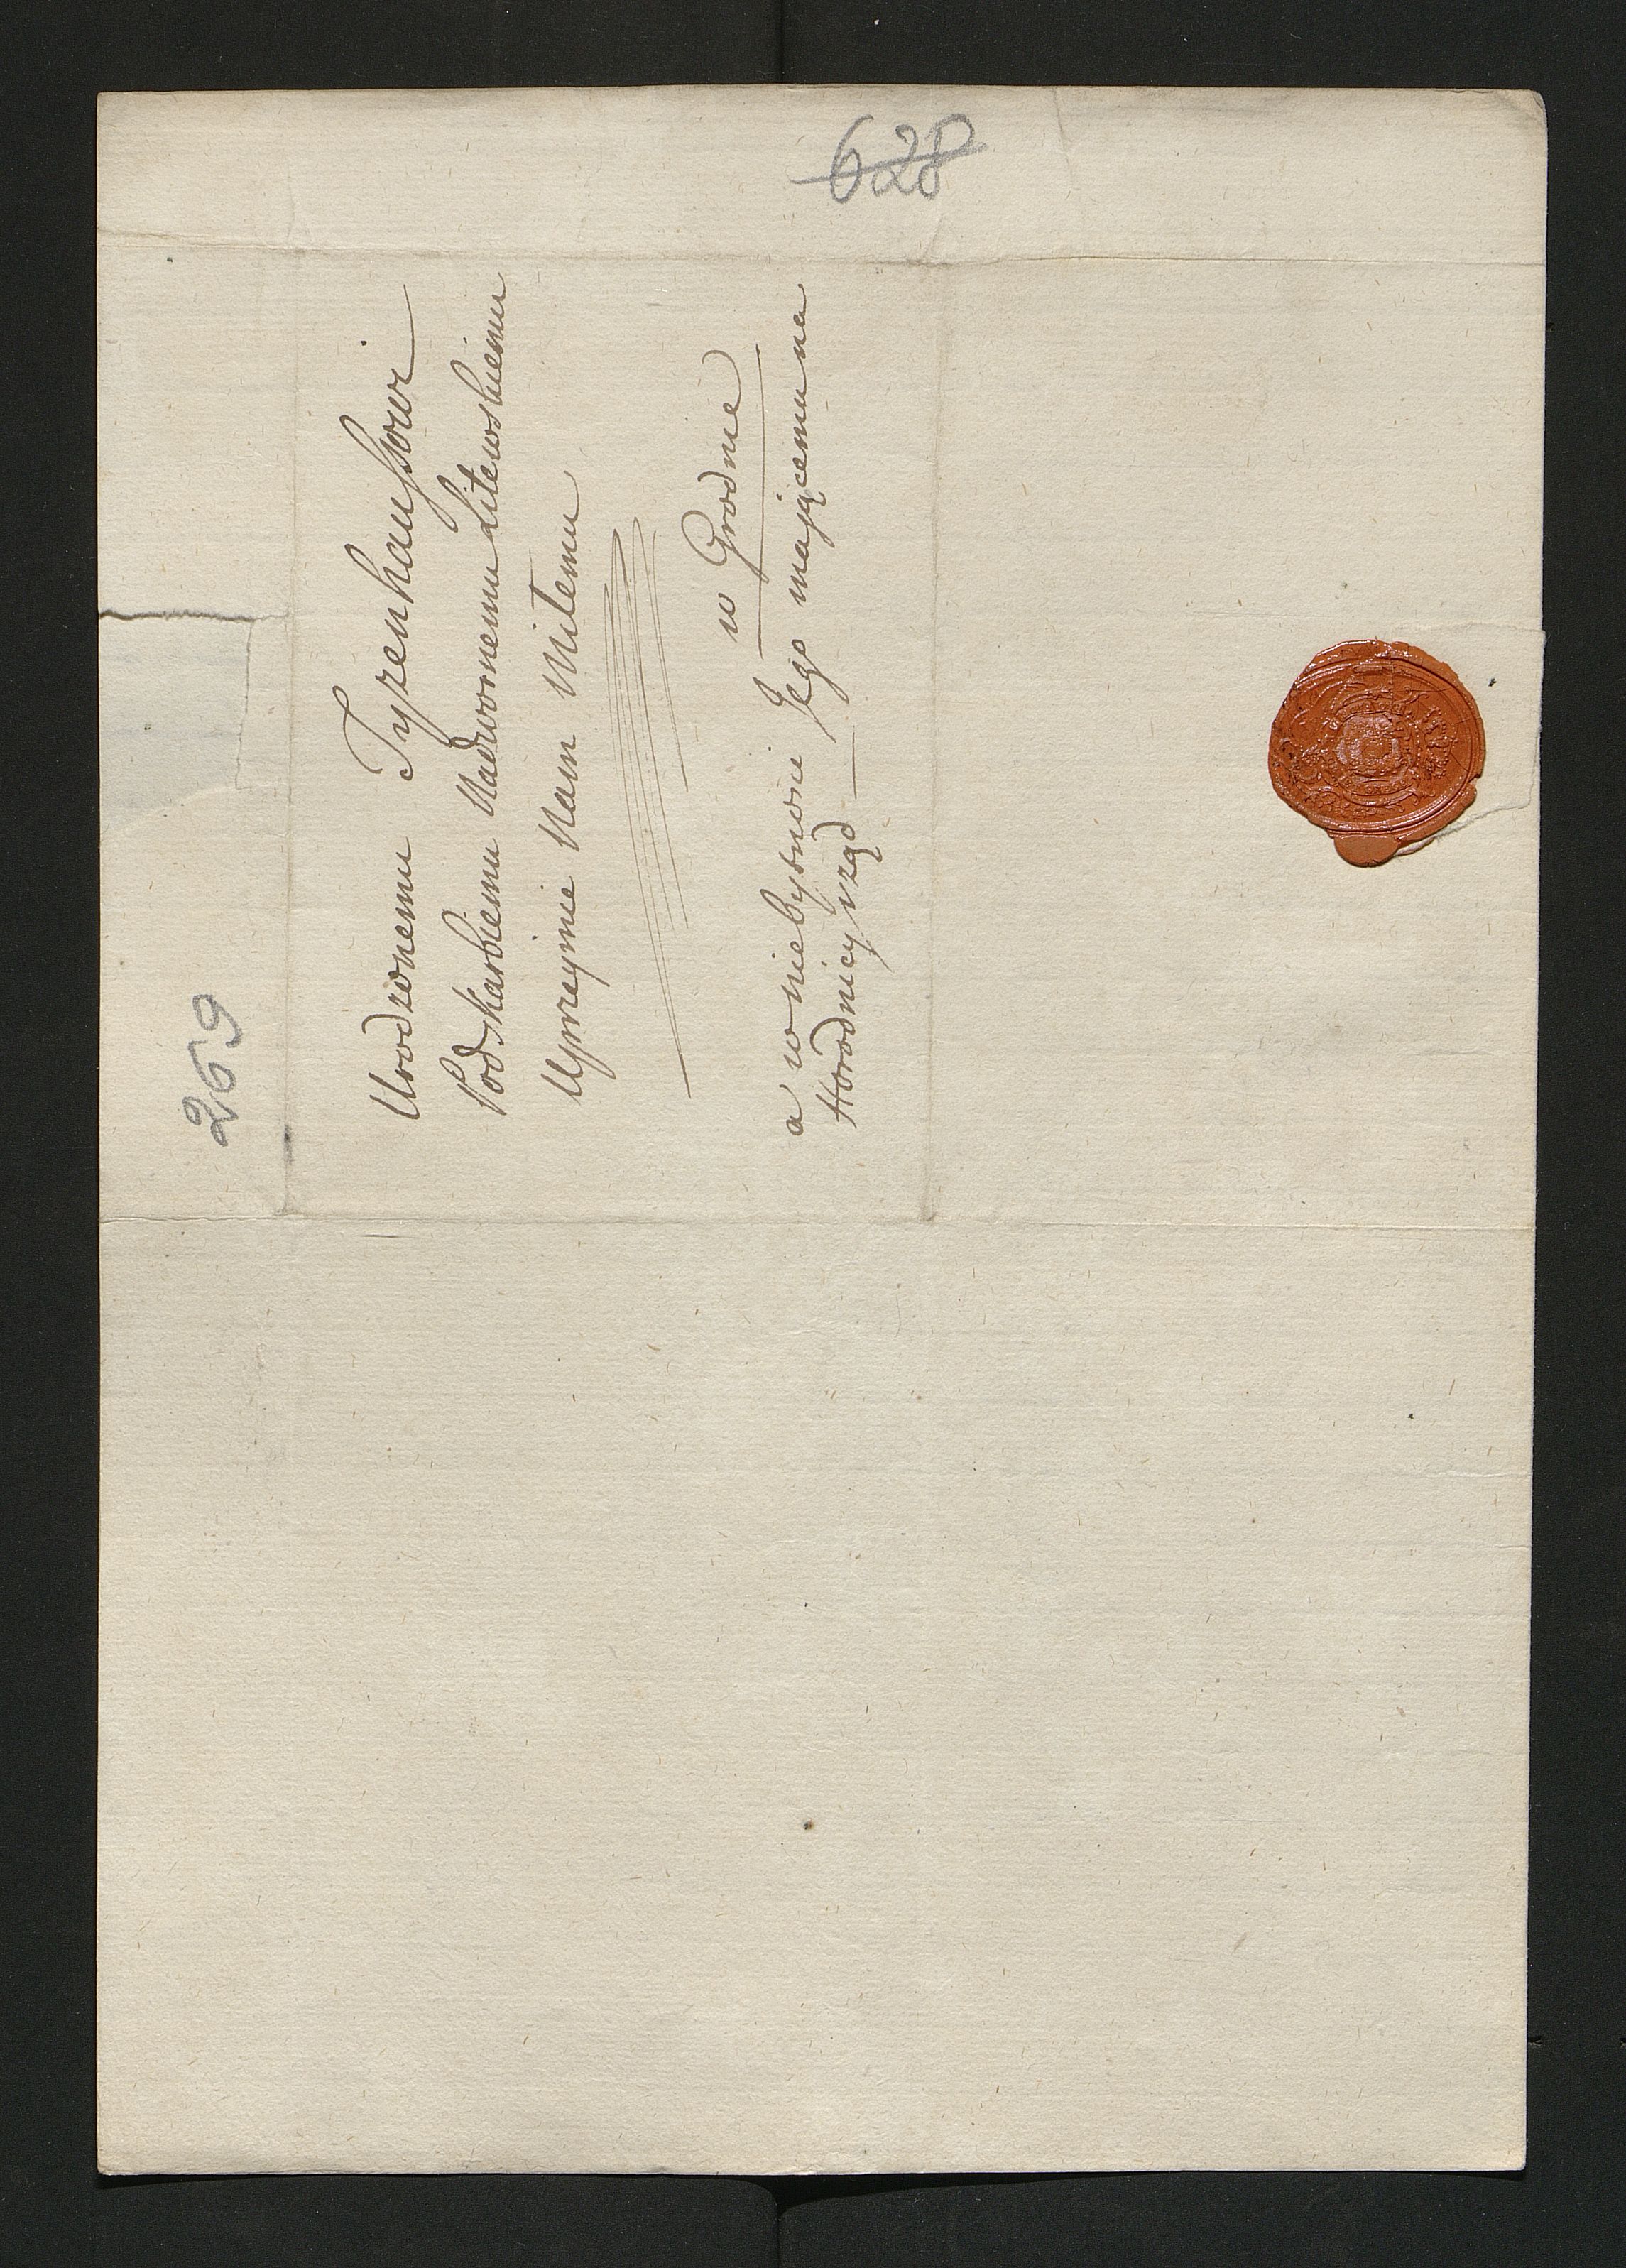 628
269
Urodzonemu Tyzenhauszowi
Podskarbiemu Nadwornemu Litewskiemu
Uprzejmie Nam Miłemu
w Grodnie
a w niebytności Jego mającemu na
Horodnicy rząd